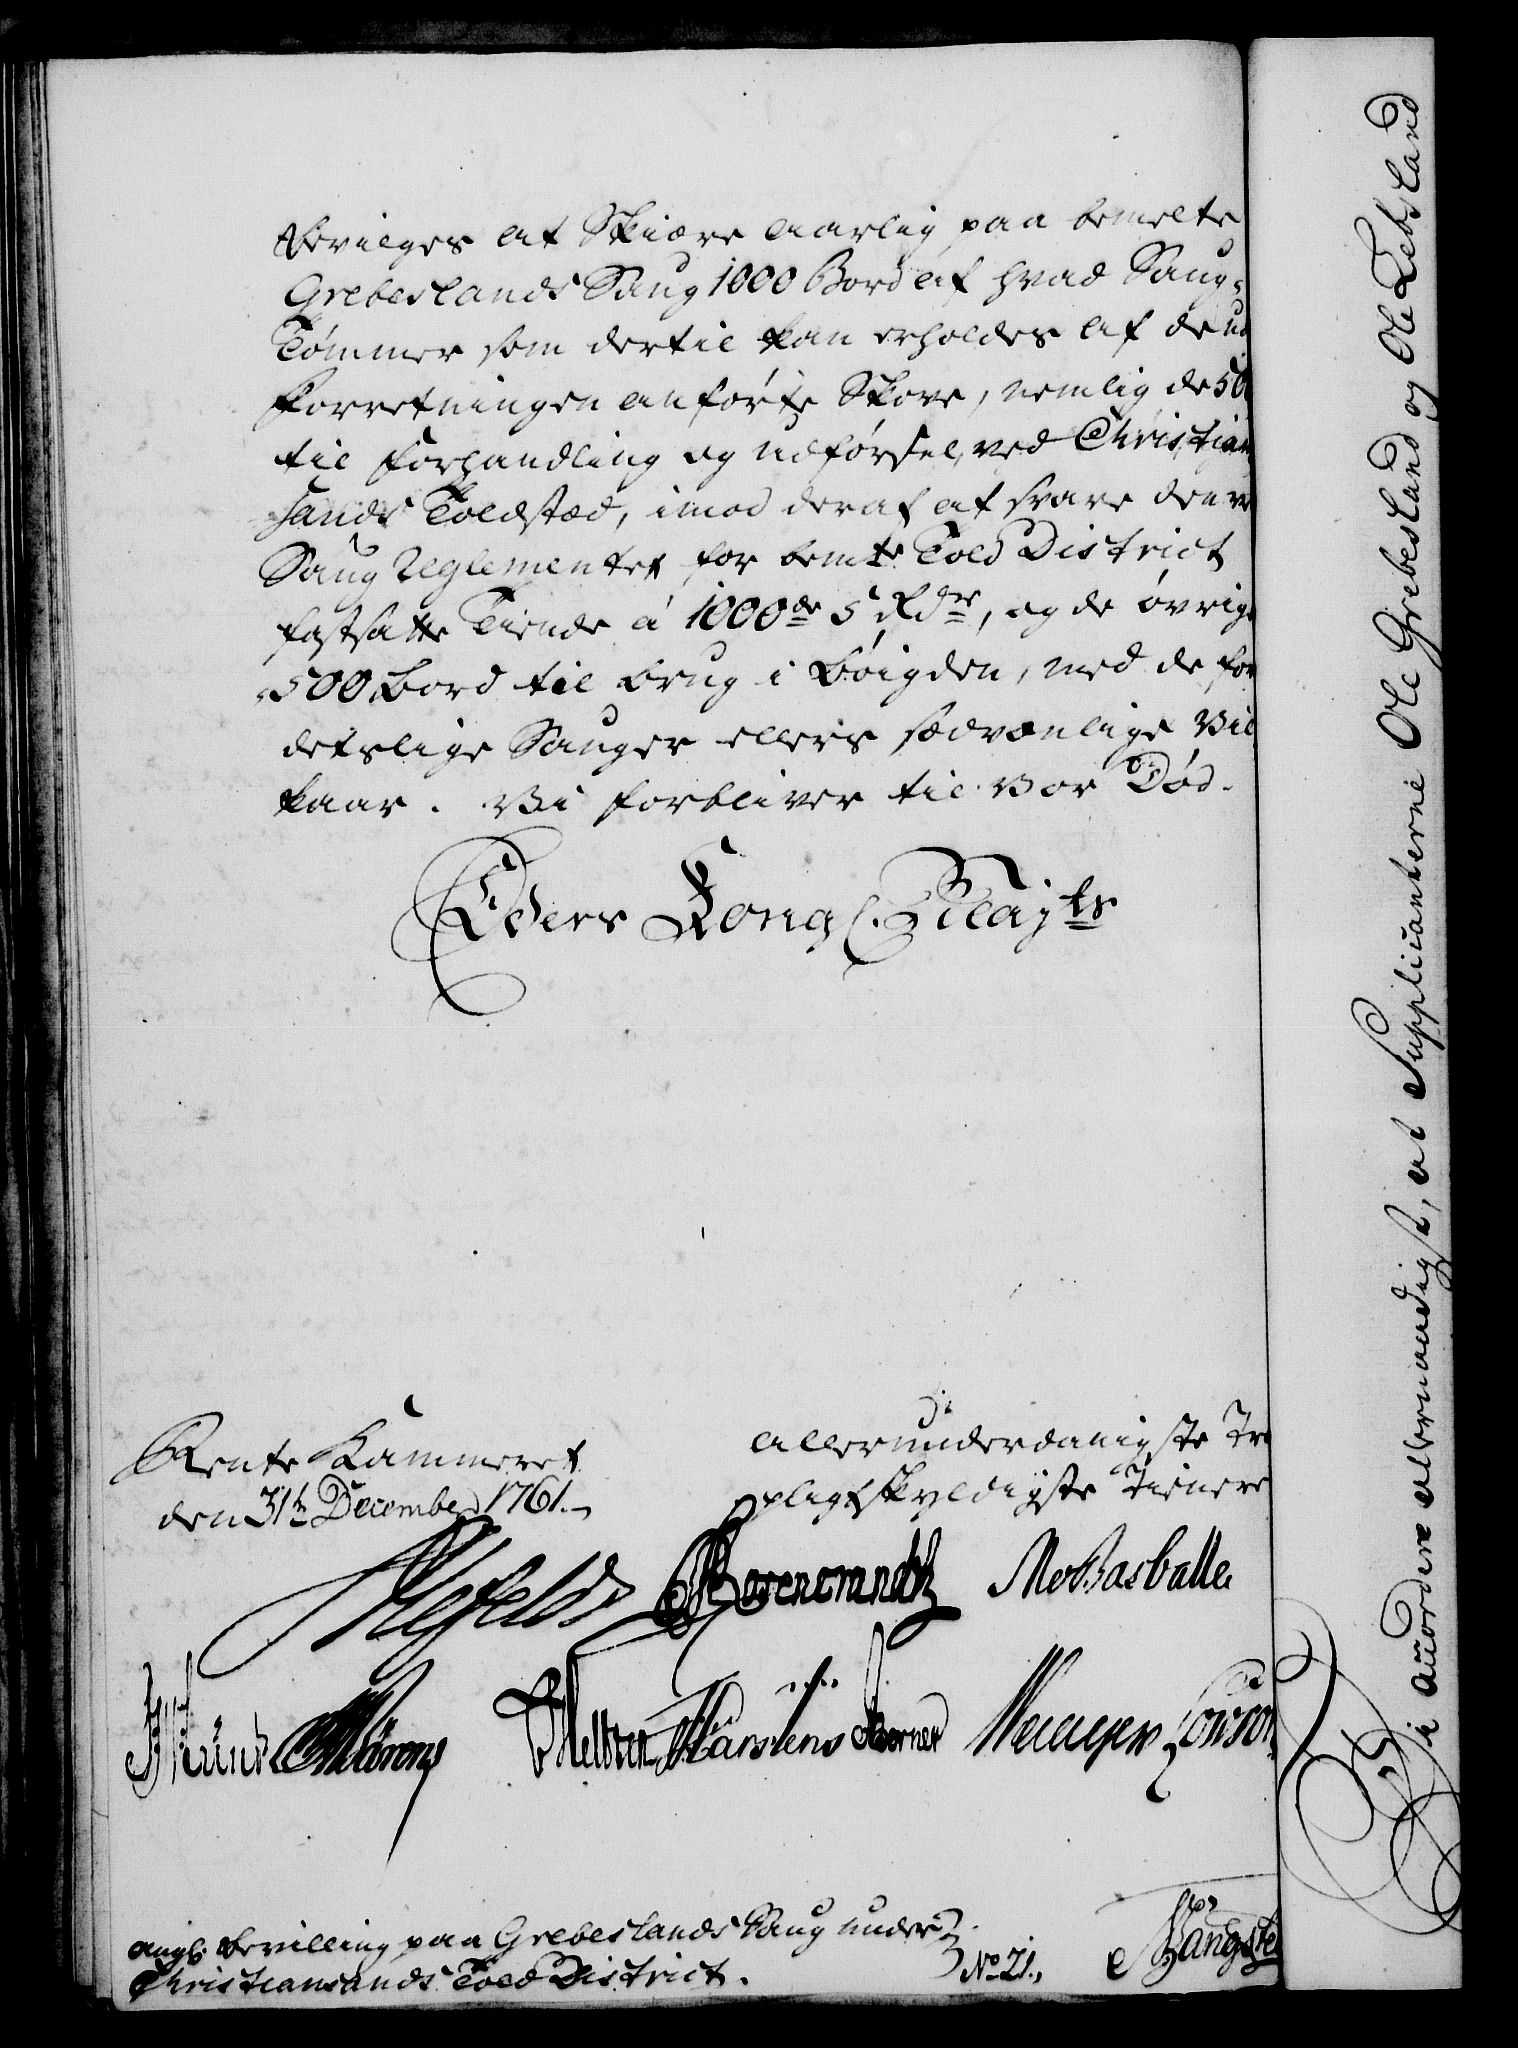 Bevilges at Skiære aarlig paa bemelte
Grebeslands Saug 1000 Bord af hvad Saug-
Tømmer som dertil kan erholdes af de ud
Forretningen anførte Skove, nemlig de 50
til Forhandling og udførsel, ved Christian
sands Toldstæd, imod deraf at svare den ve
Saug Reglementet for bemte Told District
fastsatte Tiende á 1000de 5 Rdr, og de øvrige
500 Bord til brug i Bøigden, med de for
deslige Sauger ellers sædvanlige Vil
kaar. Vi forbliver til vor Død.
Eders Kongl. Mayts
Rente Kammeret
den 31te December 1761.
allerunderdanigste Tro
pligtskyldigste Tienere
Ahlefeldt Rosencrandtz
Möröng Carstens Berner
angl: Bevilling paa Grebeslands Saug under
Christiansands Told District.
No 21.,
accordere allernaadigst, at Supplicanterne Ole Grebesland og Ole Lebsland